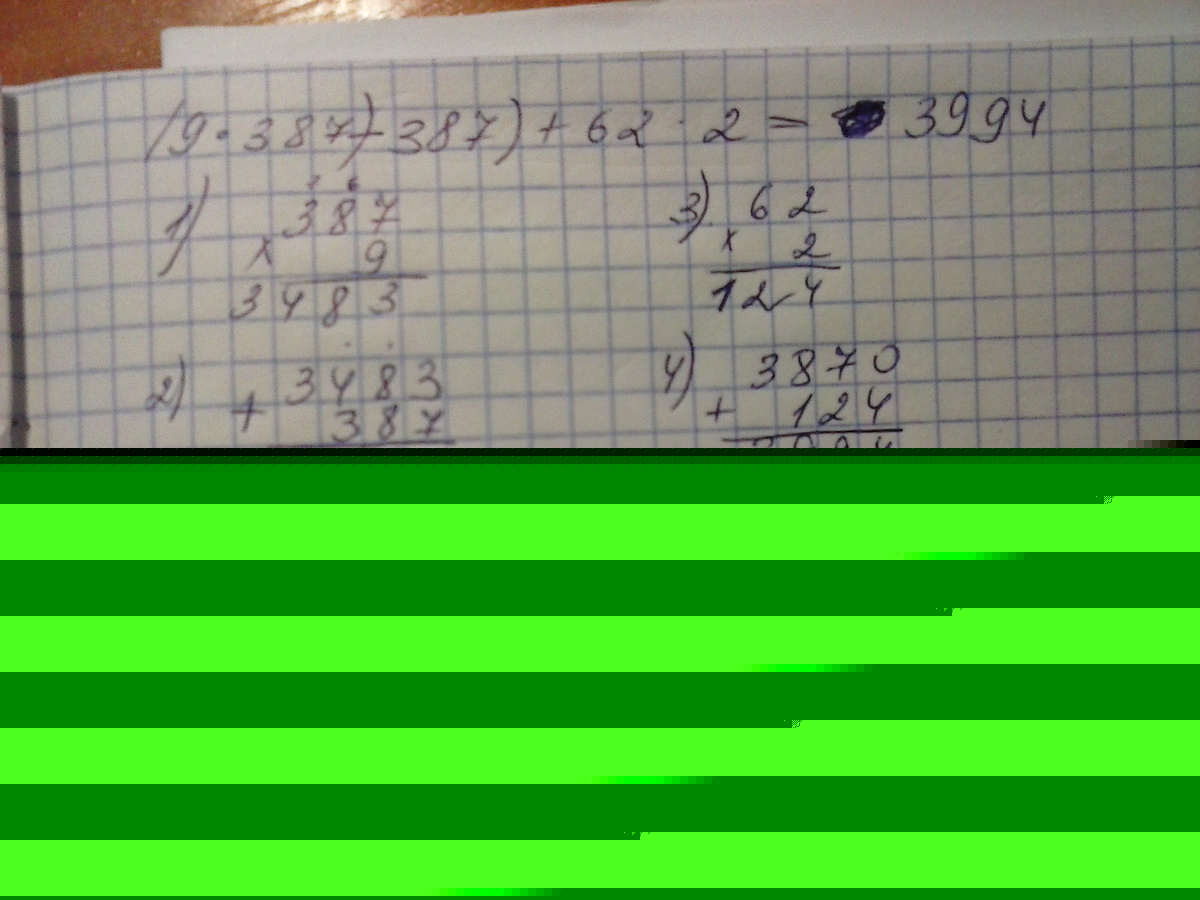 (9 · 387) + 387) + 62 · 2 = 3994
1) 387
× 9
3483
2) 3483
+ 387
3) 62
× 2
124
4) 3870
+ 124
3994